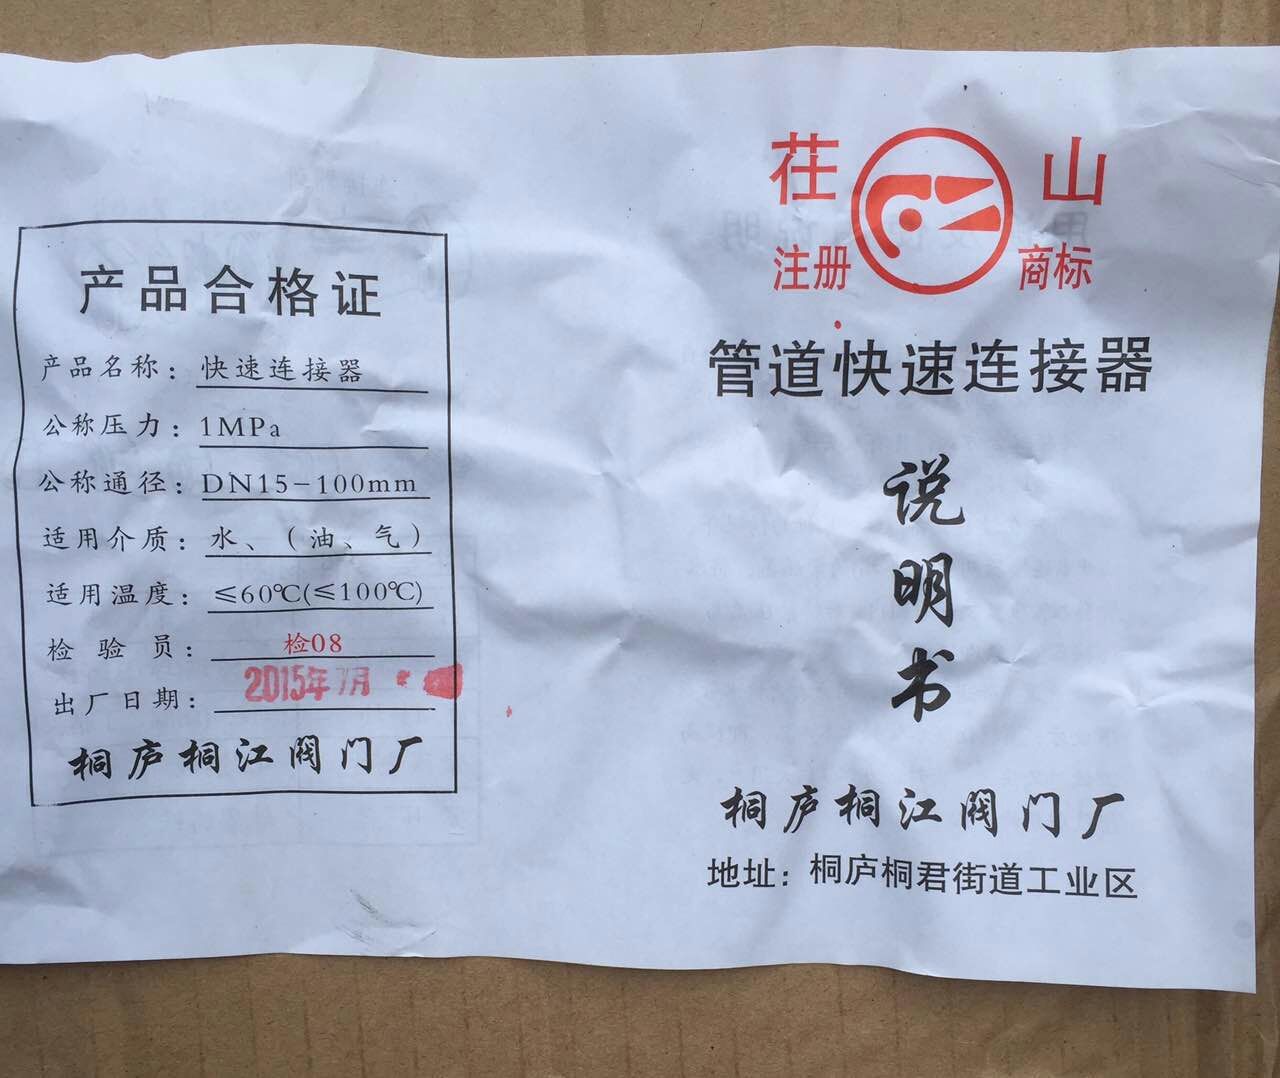 产品合格证
产品名称：快速连接器
公称压力：1MPa
公称通径：DN15-100mm
适用介质：水、（油、气）
适用温度：≤60℃(≤100℃)
检验员：检08
出厂日期：2015年7月
桐庐桐江阀门厂
茌山
注册商标
管道快速连接器
说明书
桐庐桐江阀门厂
地址：桐庐桐君街道工业区